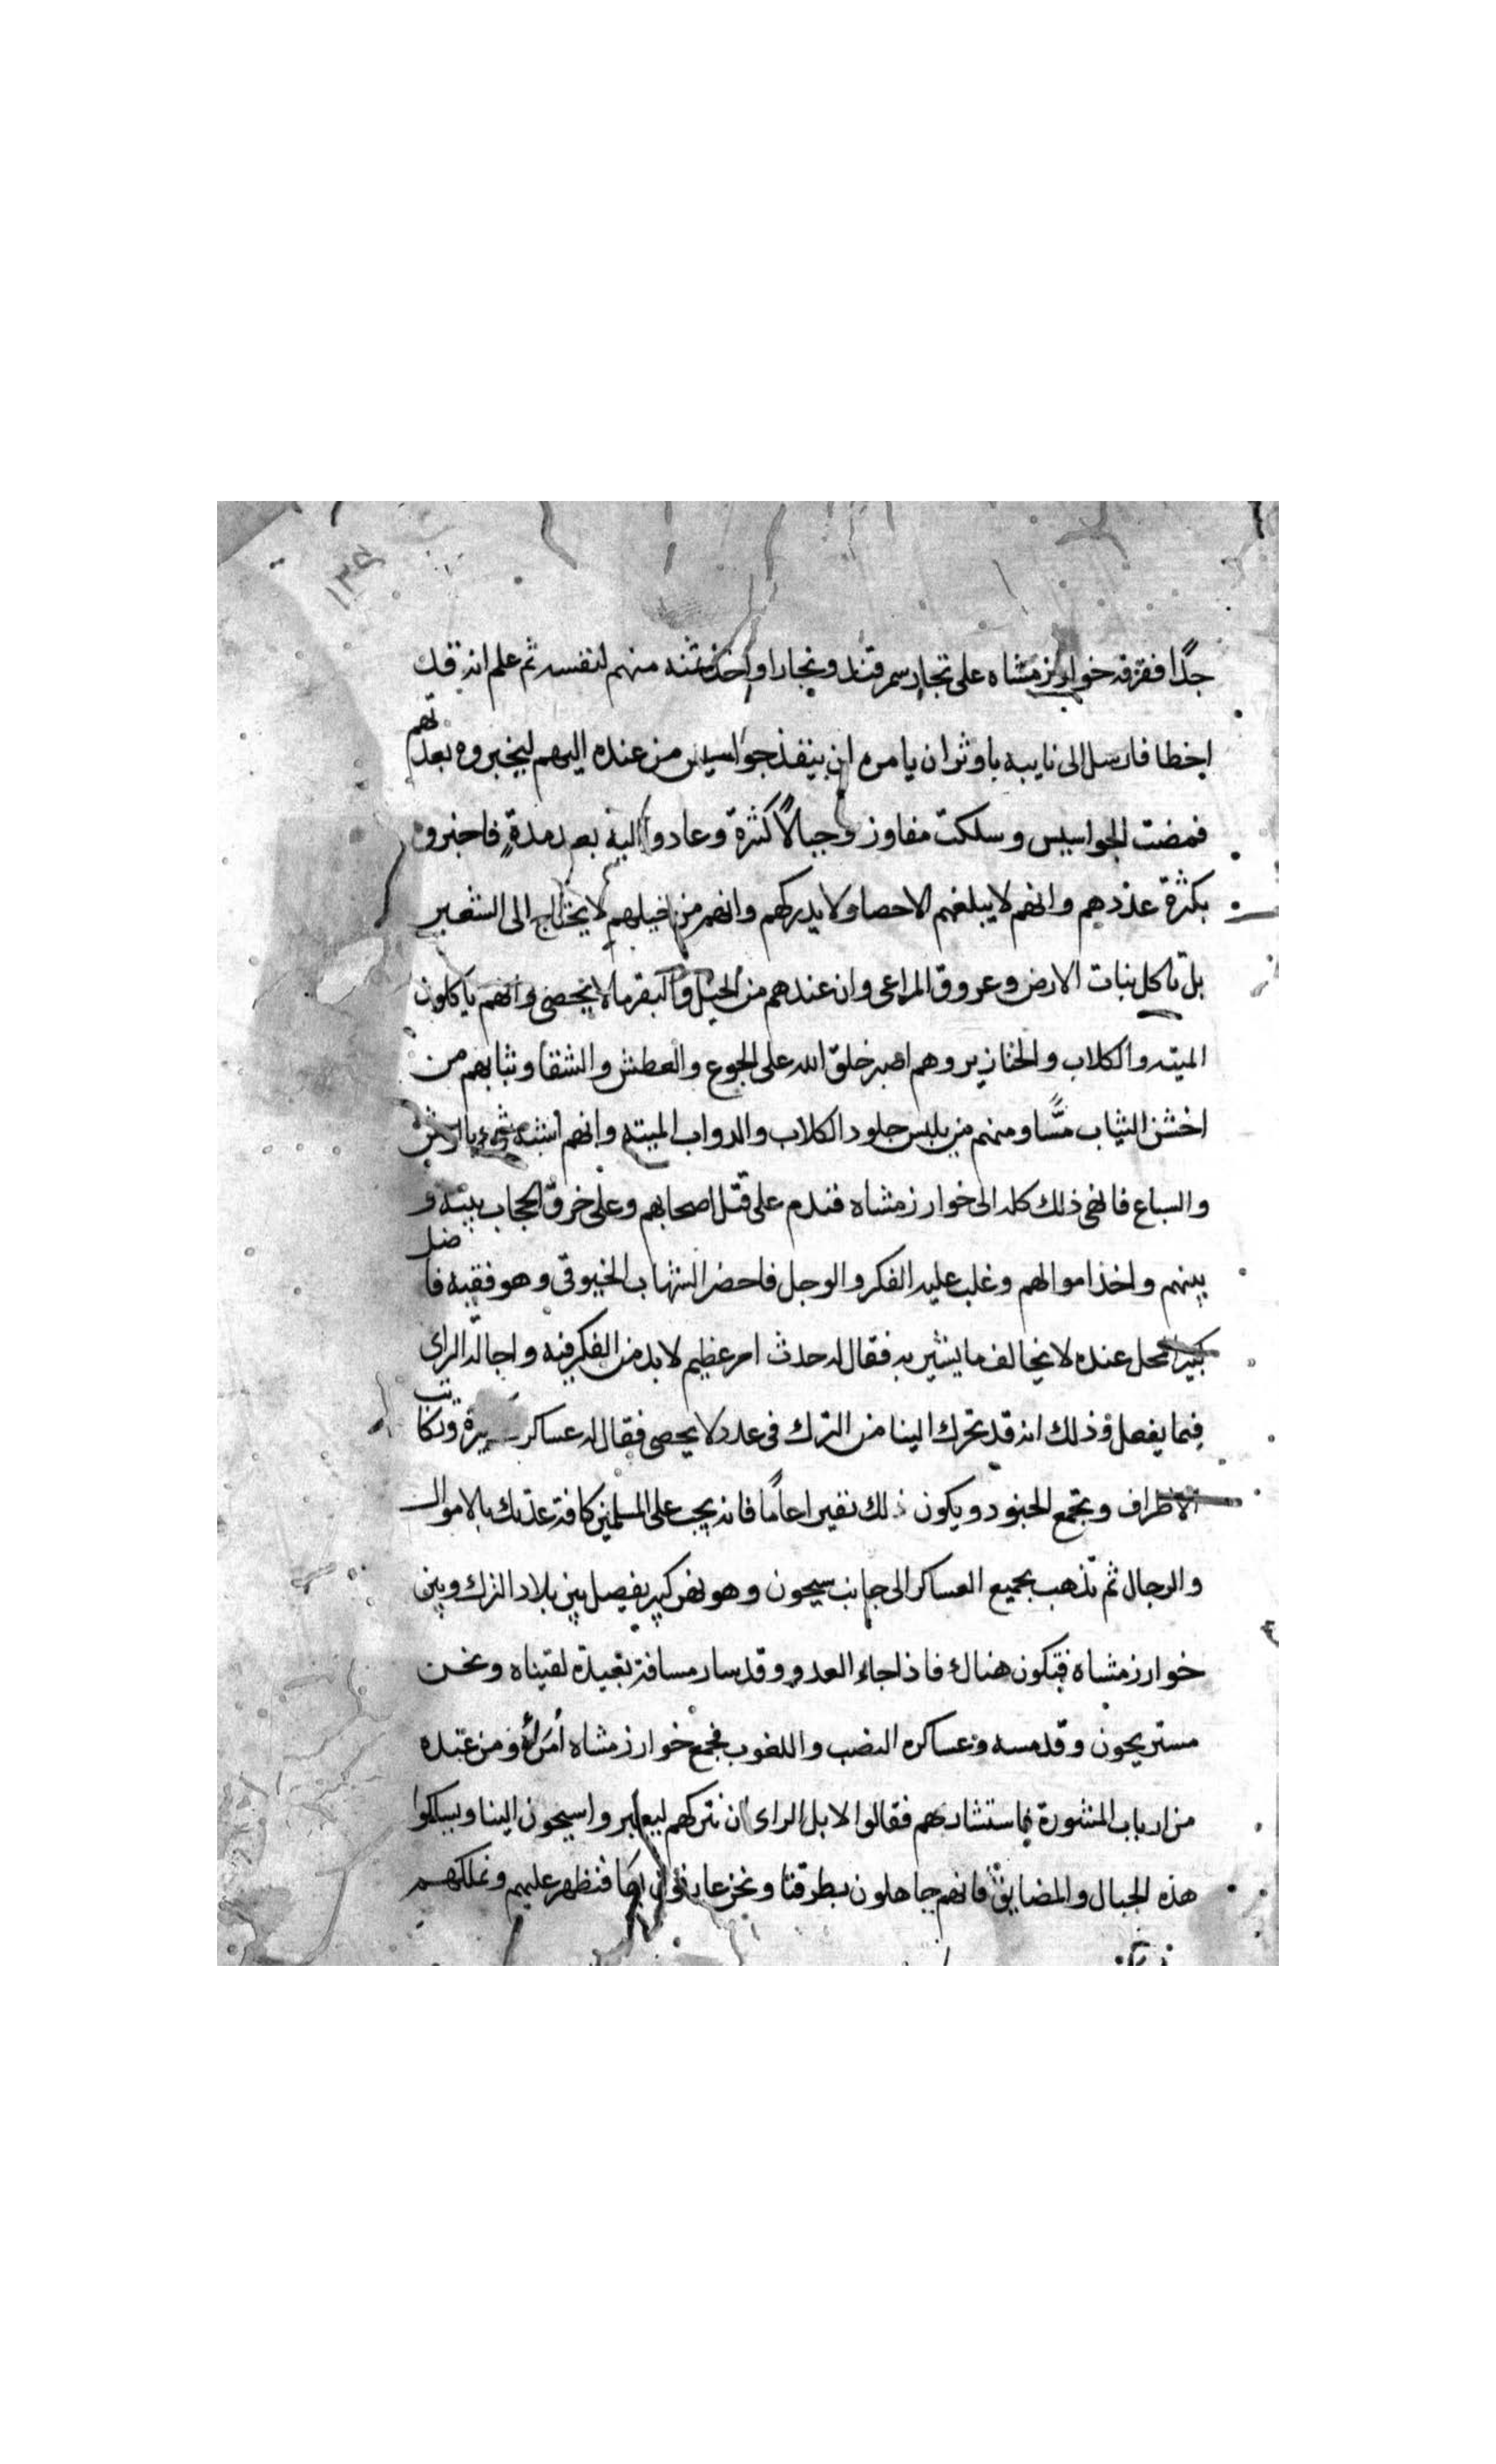 ١٣٥
جدًا ففرقه خوارزمشاه على تجار سمرقند وبخارا واخذ ثمنه منهم لنفسه ثم علم انه قد
اخطا فارسل الى نايبه باوثران يامره ان ينفذ جواسيس من عنده اليهم ليخبروه بعدتهم
فمضت الجواسيس وسلكت مفاوز وجبالًا كثرة وعادوا اليه بعد مدةٍ فاخبروه
بكثرة عددهم وانهم لا يبلغهم الاحصا ولا يدركهم وانهم من خيلهم لا يحتاج الى الشعير
بل تاكل نبات الارض وعروق المراعى وان عندهم من الخيل والبقر ما لا يحصى وانهم ياكلون
الميته والكلاب والخنازير وهم اصبر خلق الله على الجوع والعطش والشقا وثيابهم من
اخشن الثياب مسًّا ومنهم من يلبس جلود الكلاب والدواب الميته وانهم اشبه شيء بالوحش
والسباع فانهى ذلك كله الى خوارزمشاه فندم على قتل اصحابهم وعلى خرق الحجاب بينه و
بينهم واخذ اموالهم وغلب عليه الفكر والوجل فاحضر الشهاب الخيوقى وهو فقيه فاضل
كبير المحل عنده لا يخالف ما يشير به فقال له حدث امر عظيم لا بد من الفكر فيه واجالة الراى
فيما يفعل وذلك انه قد تحرك الينا من الترك فى عدد لا يحصى فقال له عساكر كثيرة وتكاتب
الاطراف وتجمع الجنود ويكون ذلك نفيرا عامًا فانه يجب على المسلمين كافة عدتك بالاموال
والرجال ثم تذهب بجميع العساكر الى جانب سيحون وهو نهر كبير يفصل بين بلاد الترك وبين
خوارزمشاه فتكون هناك فاذا جاء العدو وقد سار مسافة بعيدة لقيناه ونحن
مستريحون وقد مسه وعساكره النصب واللغوب فجمع خوارزمشاه أمراءه ومن عنده
من ارباب المشورة فاستشارهم فقالوا لا بل الراى ان نتركهم ليعبروا سيحون الينا ويسلكوا
هذه الجبال والمضايق فانهم جاهلون بطرقنا ونحن عارفون بها فنظهر عليهم ونملكهم